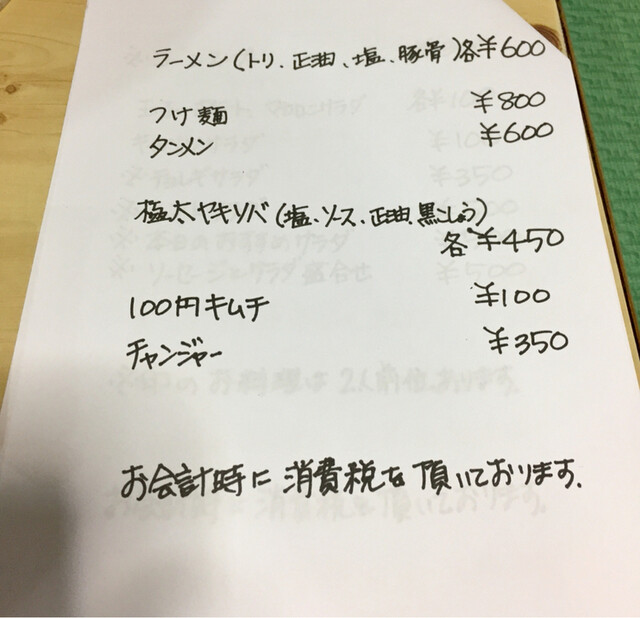 ラーメン(トリ、正油、塩、豚骨)各¥600
つけ麺 ¥800
タンメン ¥600
極太ヤキソバ(塩、ソース、正油、黒こしょう)
各¥450
100円キムチ ¥100
チャンジャー ¥350
お会計時に消費税を頂いております.